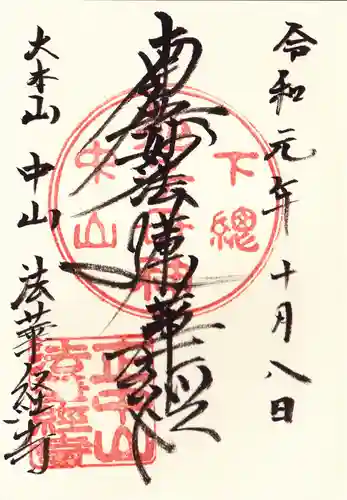 令和元年十月八日
南無妙法蓮華経
大本山 中山 法華経寺
下総
中山